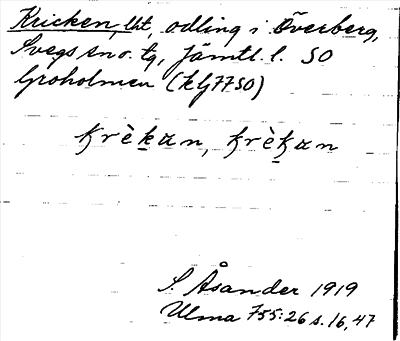 Kricken, lht, odling i Överberg,
Svegs sn o. tg, Jämtl. l. SO
Groholmen (kG7750)
krèkan, krèkan
S. Åsander 1919
Ulma 755:26 s. 16, 47